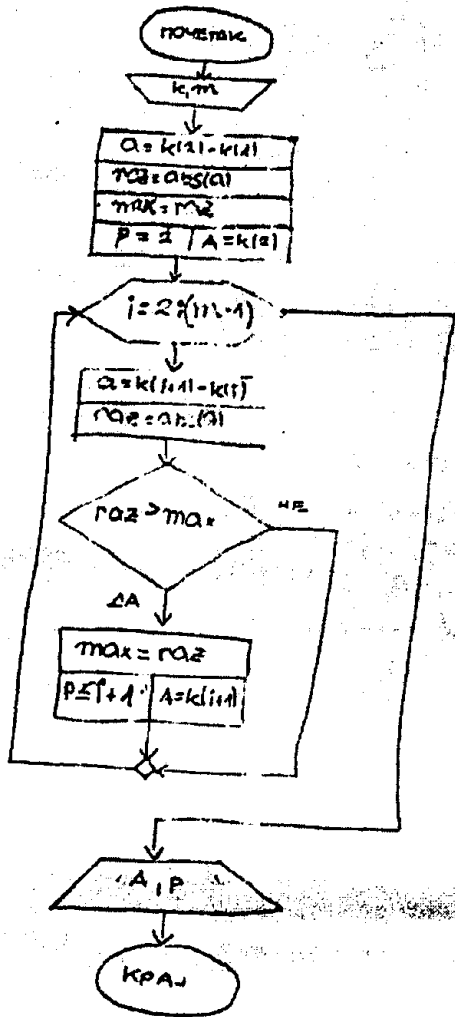 ПОЧЕТАК
k,m
a=k(2)-k(1)
raz=abs(a)
max=raz
P=2 A=k(2)
i=2:(m-1)
a=k(i+1)-k(i)
raz=abs(a)
raz>max
НЕ
ДА
max=raz
P=i+1 A=k(i+1)
A,P
КРАЈ